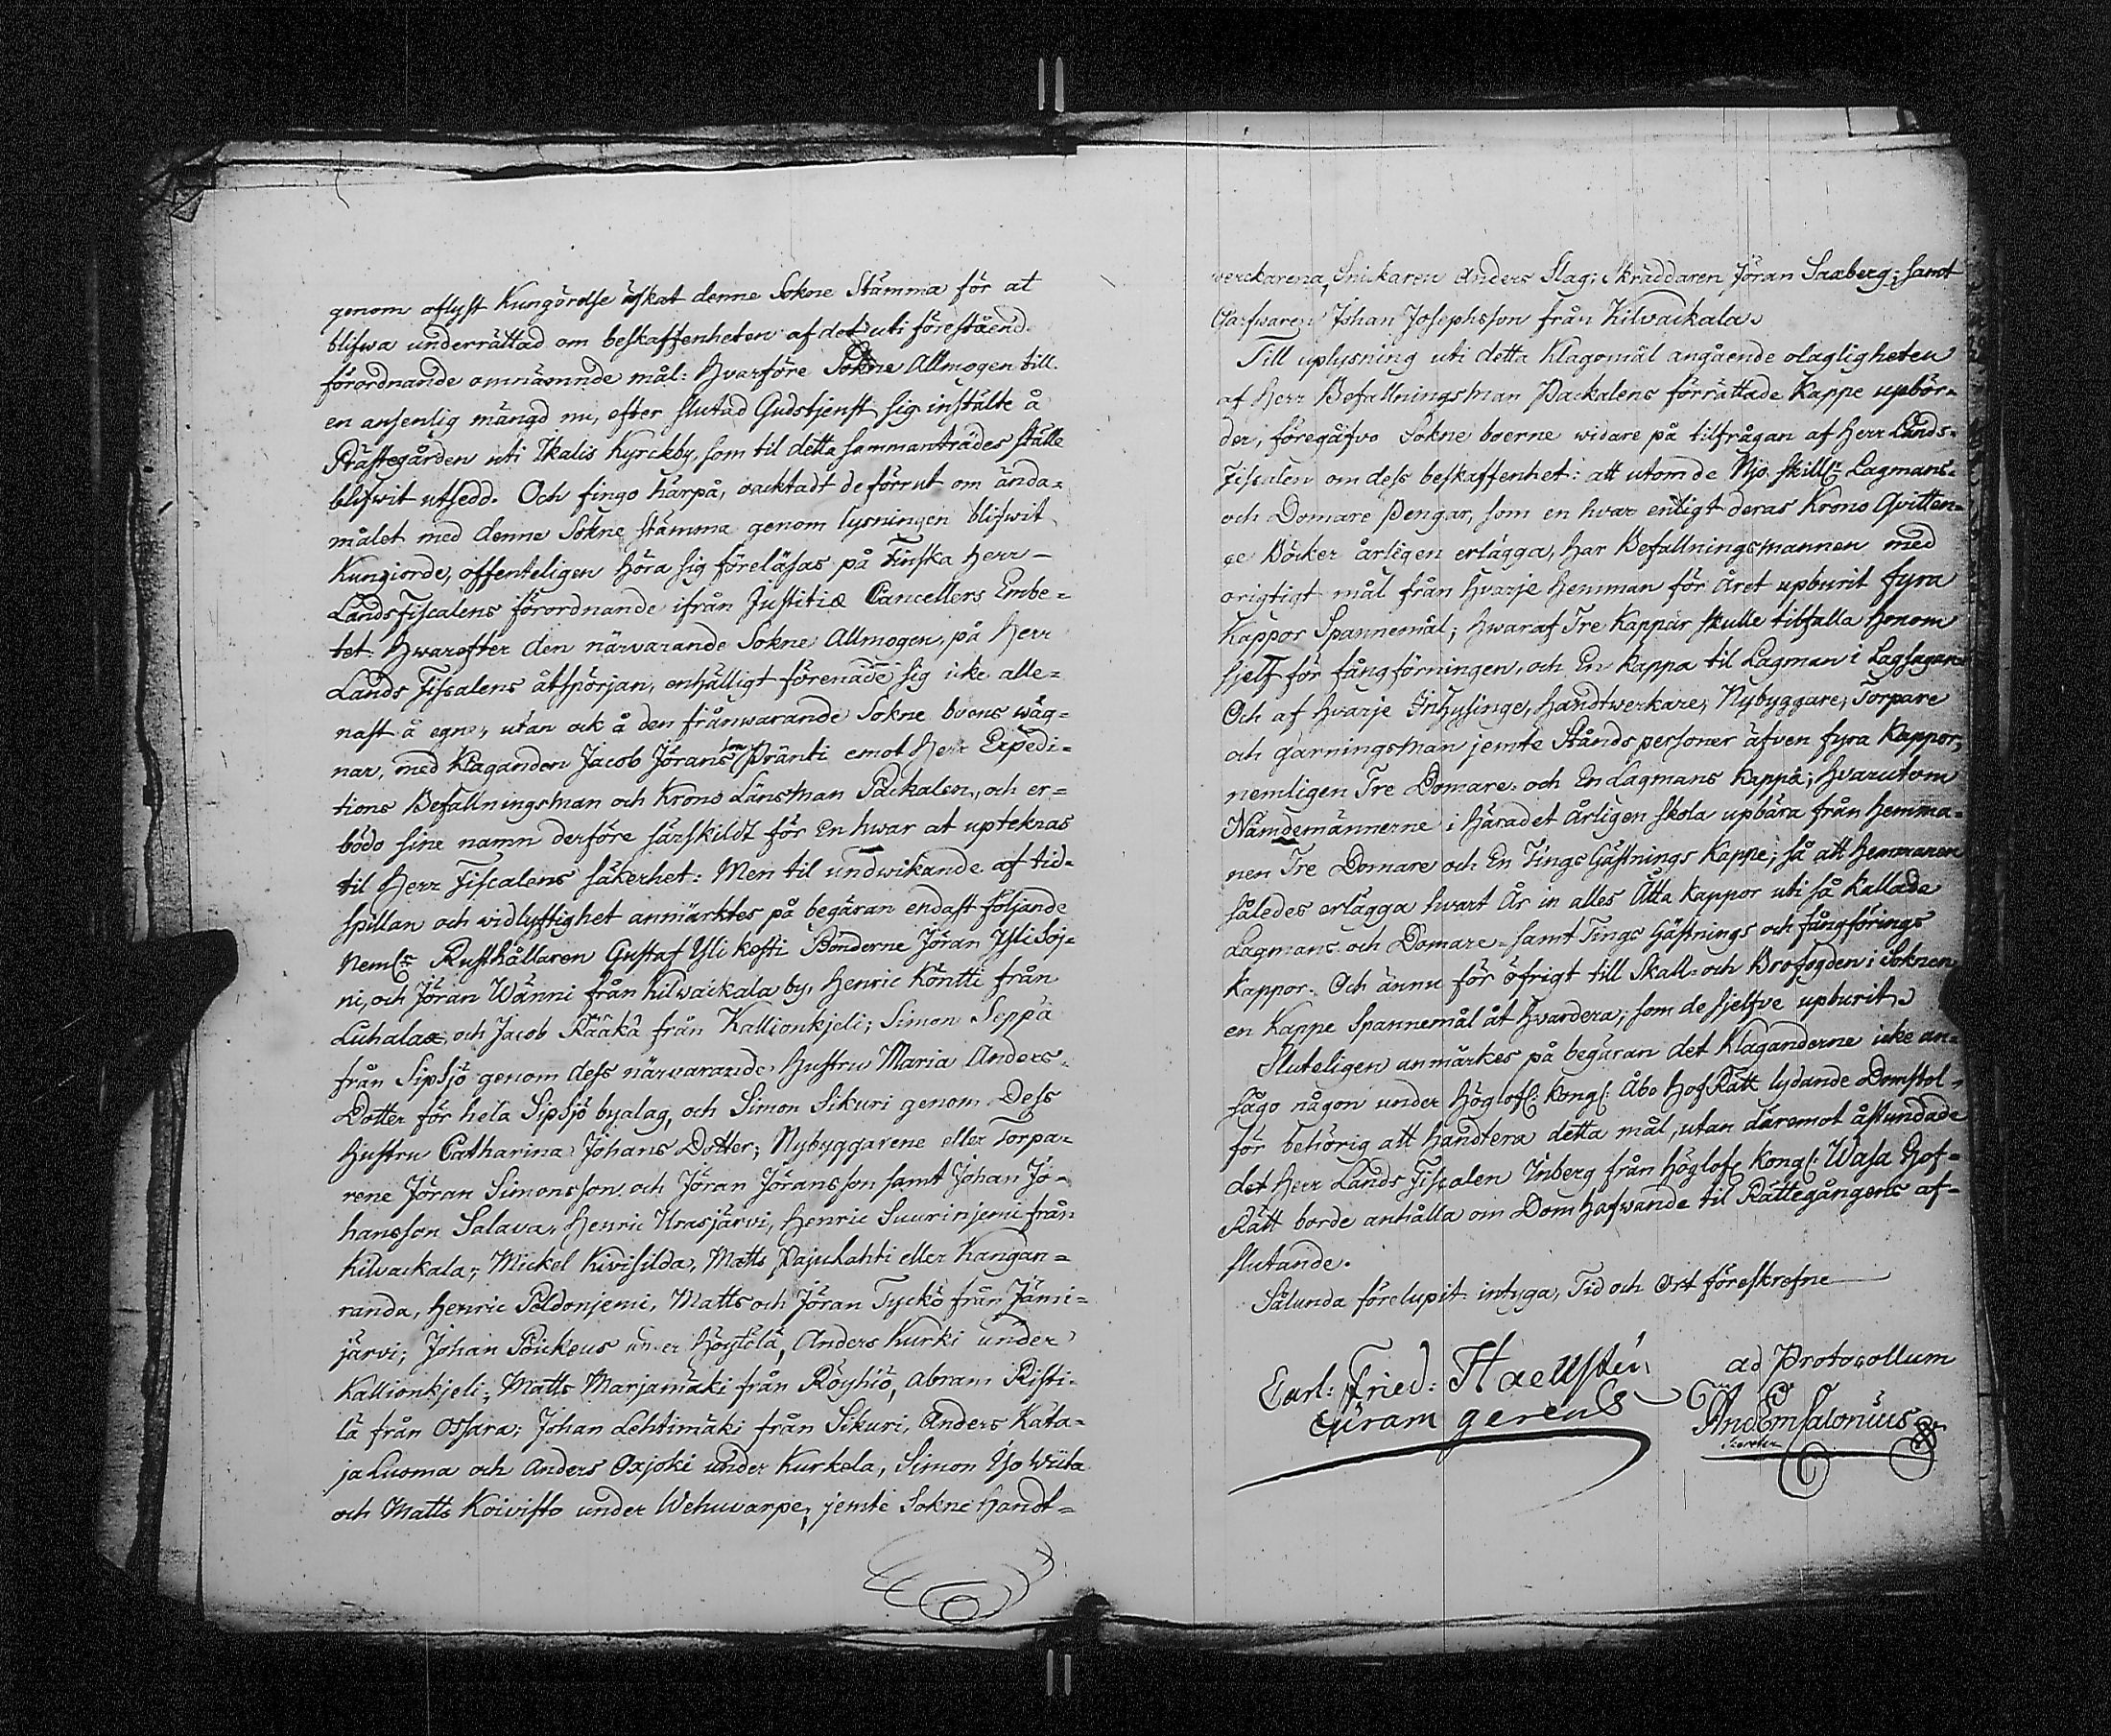 genom oflyst Kungörelse äskat denne Sokne Stämma för at
blifwa underrättad om beskaffenheten af det uti förestående
förordnande omnämnde mål: hvarföre Sokne Allmogen till
en ansenlig mängd nu, efter slutad Gudstjenst sig instälte å
Prästegården uti Ikalis Kyrckby, som til detta sammanträdes ställe
blifwit utsedd. Och fingo härpå, oacktadt de förrut om ända=
målet med denne Sokne stämma genom lysningen blifwit
Kungiorde, offenteligen höra sig föreläsas på Finska Herr
Lands Fiscalens förordnande ifrån Justitiæ Cancellers Embe=
tet. Hwarefter den närvarande Sokne Allmogen, på Herr
Lands Fiscalens åtspörjan, enhälligt förenade sig icke alle=
nast å egne, utan ock å den frånwarande Sokne boens wäg=
nar, med Klaganden Jacob Jöransson Pränti emot Herr Expedi=
tions Befallningsman och Krono Länsman Packalen, och er=
bödo sine namn derföre särskildt för En hwar at upteknas
til Herr Fiscalens säkerhet: Men til undwikande af tid=
spillan och widlyftighet anmärktes på begäran endast följande
Neml:n Rusthållaren Gustaf Yli kesti Bönderne Jöran Yli Soj=
ni, och Jöran Wänni från Kilwackala by, Henric Köntti från
Luhalax, och Jacob Rääkä från Kallionkjeli; Simon Seppä
från Sipsjö genom dess närwarande Hustru Maria Anders
Dotter för hela Sipsjö byalag, och Simon Sikuri genom Dess
Hustru Catharina Johans Dotter; Nybyggarene eller Torpa=
rene Jöran Simonsson och Jöran Jöransson samt Johan Jo=
hansson Salava, Henric Urasjärvi, Henric Suurinjemi från
Kilvackala; Mickel Kivisilda, Matts Pajulahti eller Kangan=
randa, Henric Poldonjemi, Matts och Jöran Tyckö från Jämi=
järvi; Johan Poukeus under Höytölä, Anders Kurki under
Kallionkjeli; Matts Marjamäki från Röyhiö, Abram Risti=
lä från Ossara; Johan Lehtimäki från Sikuri, Anders Kata=
ja Luoma och Anders Oxjoki under Kurkela, Simon Iso Wiita
och Matts Koivisto under Wehuvarpe; jemte Sokne Handt=
verckarena, Snickaren Anders Slag; Skräddaren Jöran Saxberg; samt
Garfvaren Johan Josephsson från Kilvackala.
Till uplysning uti detta Klagomål angående olagligheten
af Herr Befallningsman Packalens förrättade Kappe upbör=
der, föregåfvo Sokne boerne widare på tilfrågan af Herr Lands=
Fiscalen om dess beskaffenhet: att utom de Nio Skill:r Lagmans=
och Domare Pengar, som en hvar enligt deras Krono Qvitten=
ce Böcker årligen erlägga, har Befallningsmannen med
origtigt mål från hvarje hemman för Året upburit fyra
Kappor Spannemål; hwaraf Tre Kappar skulle tilfalla honom
sjelf för fångförningen, och En Kappa til Lagman i Lagsagan
Och af hvarje Inhysinge, Handtwerkare, Nybyggare, Torpare
och gärningsman jemte Stånds personer äfven fyra Kappor;
nemligen Tre Domare och En Lagmans Kappa; hvarutom
Nämdemännerne i Häradet Årligen skola upbära från Hemma=
nen Tre Domare och En Tings Gästnings Kappe; så att hemmanen
således erlägga hvart År in alles Åtta kappor uti så kallade
Lagmans och Domare= samt Tings Gästnings och fångförings
kappor. Och ännu för öfrigt till Skall= och Brofogden i Soknen
en Kappe Spannemål åt hvardera; som de sjelfve upburit.
Sluteligen anmärkes på begäran det Klaganderne icke an=
sågo någon under Höglofl: Kongl: Åbo Hof Rätt lydande Domstol
för behörig att handtera detta mål, utan däremot åstundade
det Herr Lands Fiscalen Inberg från Höglofl: Kongl: Wasa Hof=
Rätt borde anhålla om Dom hafwande til Rättegångens af=
slutande.
Sålunda förelupit intyga, Tid och Ort föreskrefne
Carl: Fried: Haellsten
Curam gerens
ad Protocollum
And Em Salonius